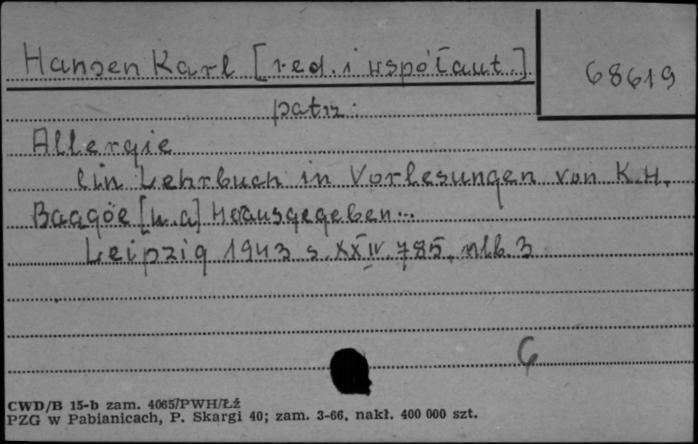 Hansen Karl [red. i współaut.]
68619
patrz:
Allergie
Ein Lehrbuch in Vorlesungen von K.H.
Baagöe [u.a] Herausgegeben...
Leipzig 1943 s. XXIV. 785, nlb. 3
6
CWD/B 15-b zam. 4065/PWH/Łź
PZG w Pabianicach, P. Skargi 40; zam. 3-66, nakł. 400 000 szt.